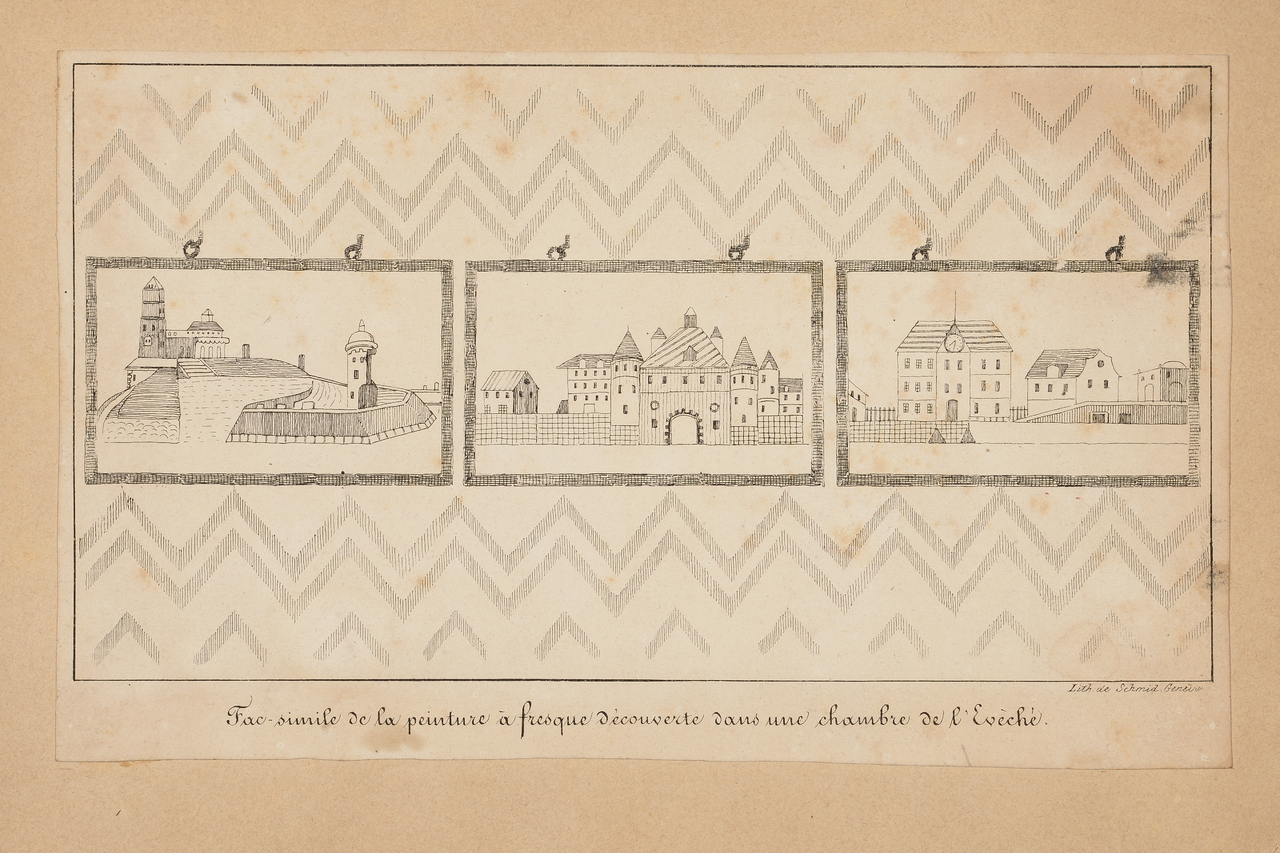 Lith. de Schmid. Genève
Fac-simile de la peinture à fresque découverte dans une chambre de l'Evêché.